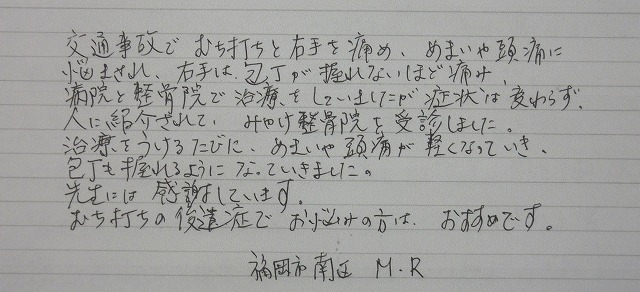 交通事故で むち打ちと右手を痛め、めまいや頭痛に
悩まされ、右手は、包丁が握れないほど痛み、
病院と整骨院で治療をしていましたが症状は変わらず、
人に紹介されて、みやけ整骨院を受診しました。
治療をうけるたびに、めまいや頭痛が軽くなっていき、
包丁も握れるようになっていきました。
先生には感謝しています。
むち打ちの後遺症で お悩みの方は、おすすめです。
福岡市南区 M.R